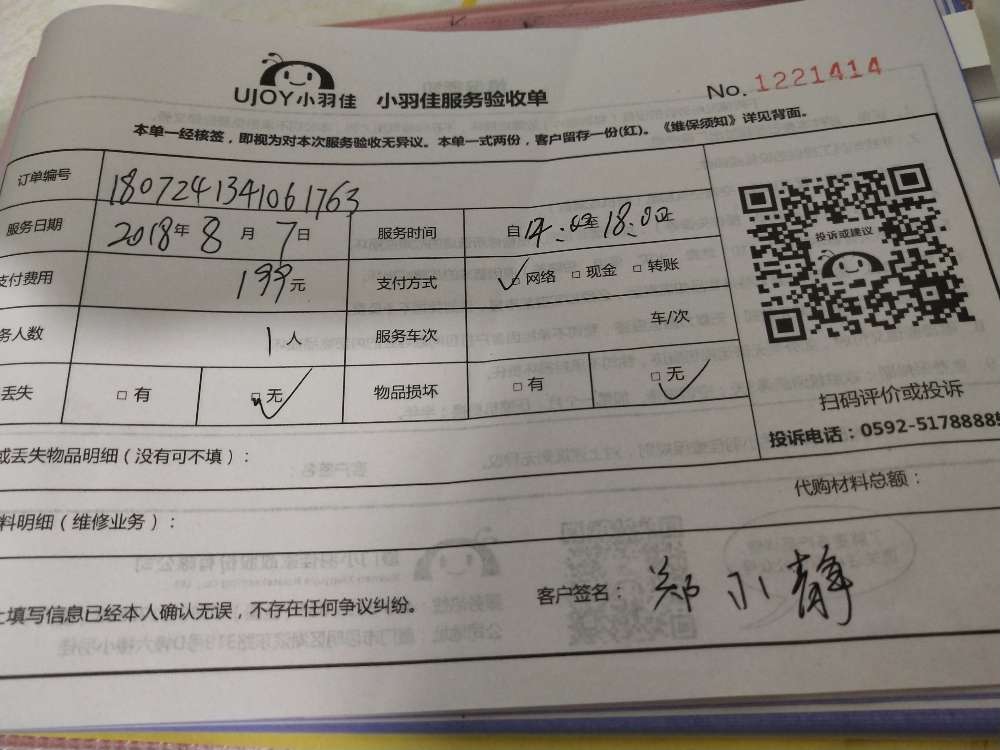 UJOY小羽佳 小羽佳服务验收单 No. 1221414
本单一经核签，即视为对本次服务验收无异议。本单一式两份，客户留存一份(红)。《维保须知》详见背面。
订单编号 180724134106​1763
服务日期 2018年 8月 7日 服务时间 自14:00至18:00止
支付费用 199元 支付方式 ☑网络 □现金 □转账
务人数 1人 服务车次 车/次
丢失 □有 ☑无 物品损坏 □有 ☑无
投诉或建议
扫码评价或投诉
投诉电话：0592-5178889
或丢失物品明细（没有可不填）：
料明细（维修业务）： 代购材料总额：
上填写信息已经本人确认无误，不存在任何争议纠纷。 客户签名： 郑小静